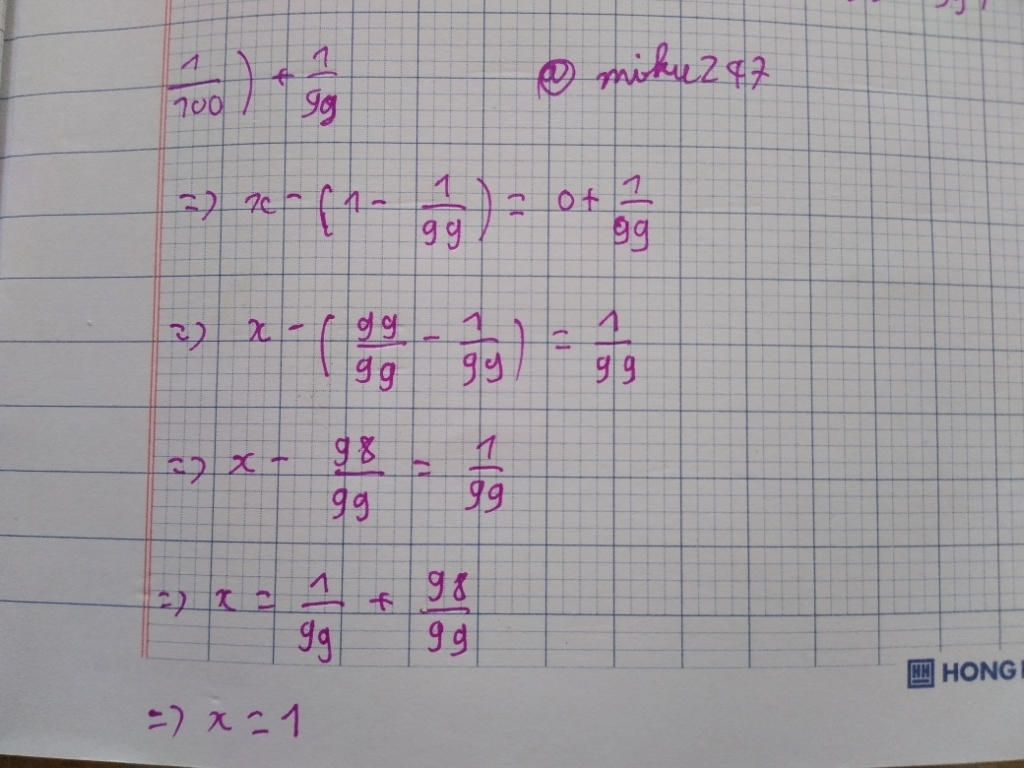 1/100) + 1/99 @ miku247
=> x - (1 - 1/99) = 0 + 1/99
=> x - (99/99 - 1/99) = 1/99
=> x - 98/99 = 1/99
=> x = 1/99 + 98/99
HH HONG
=> x = 1